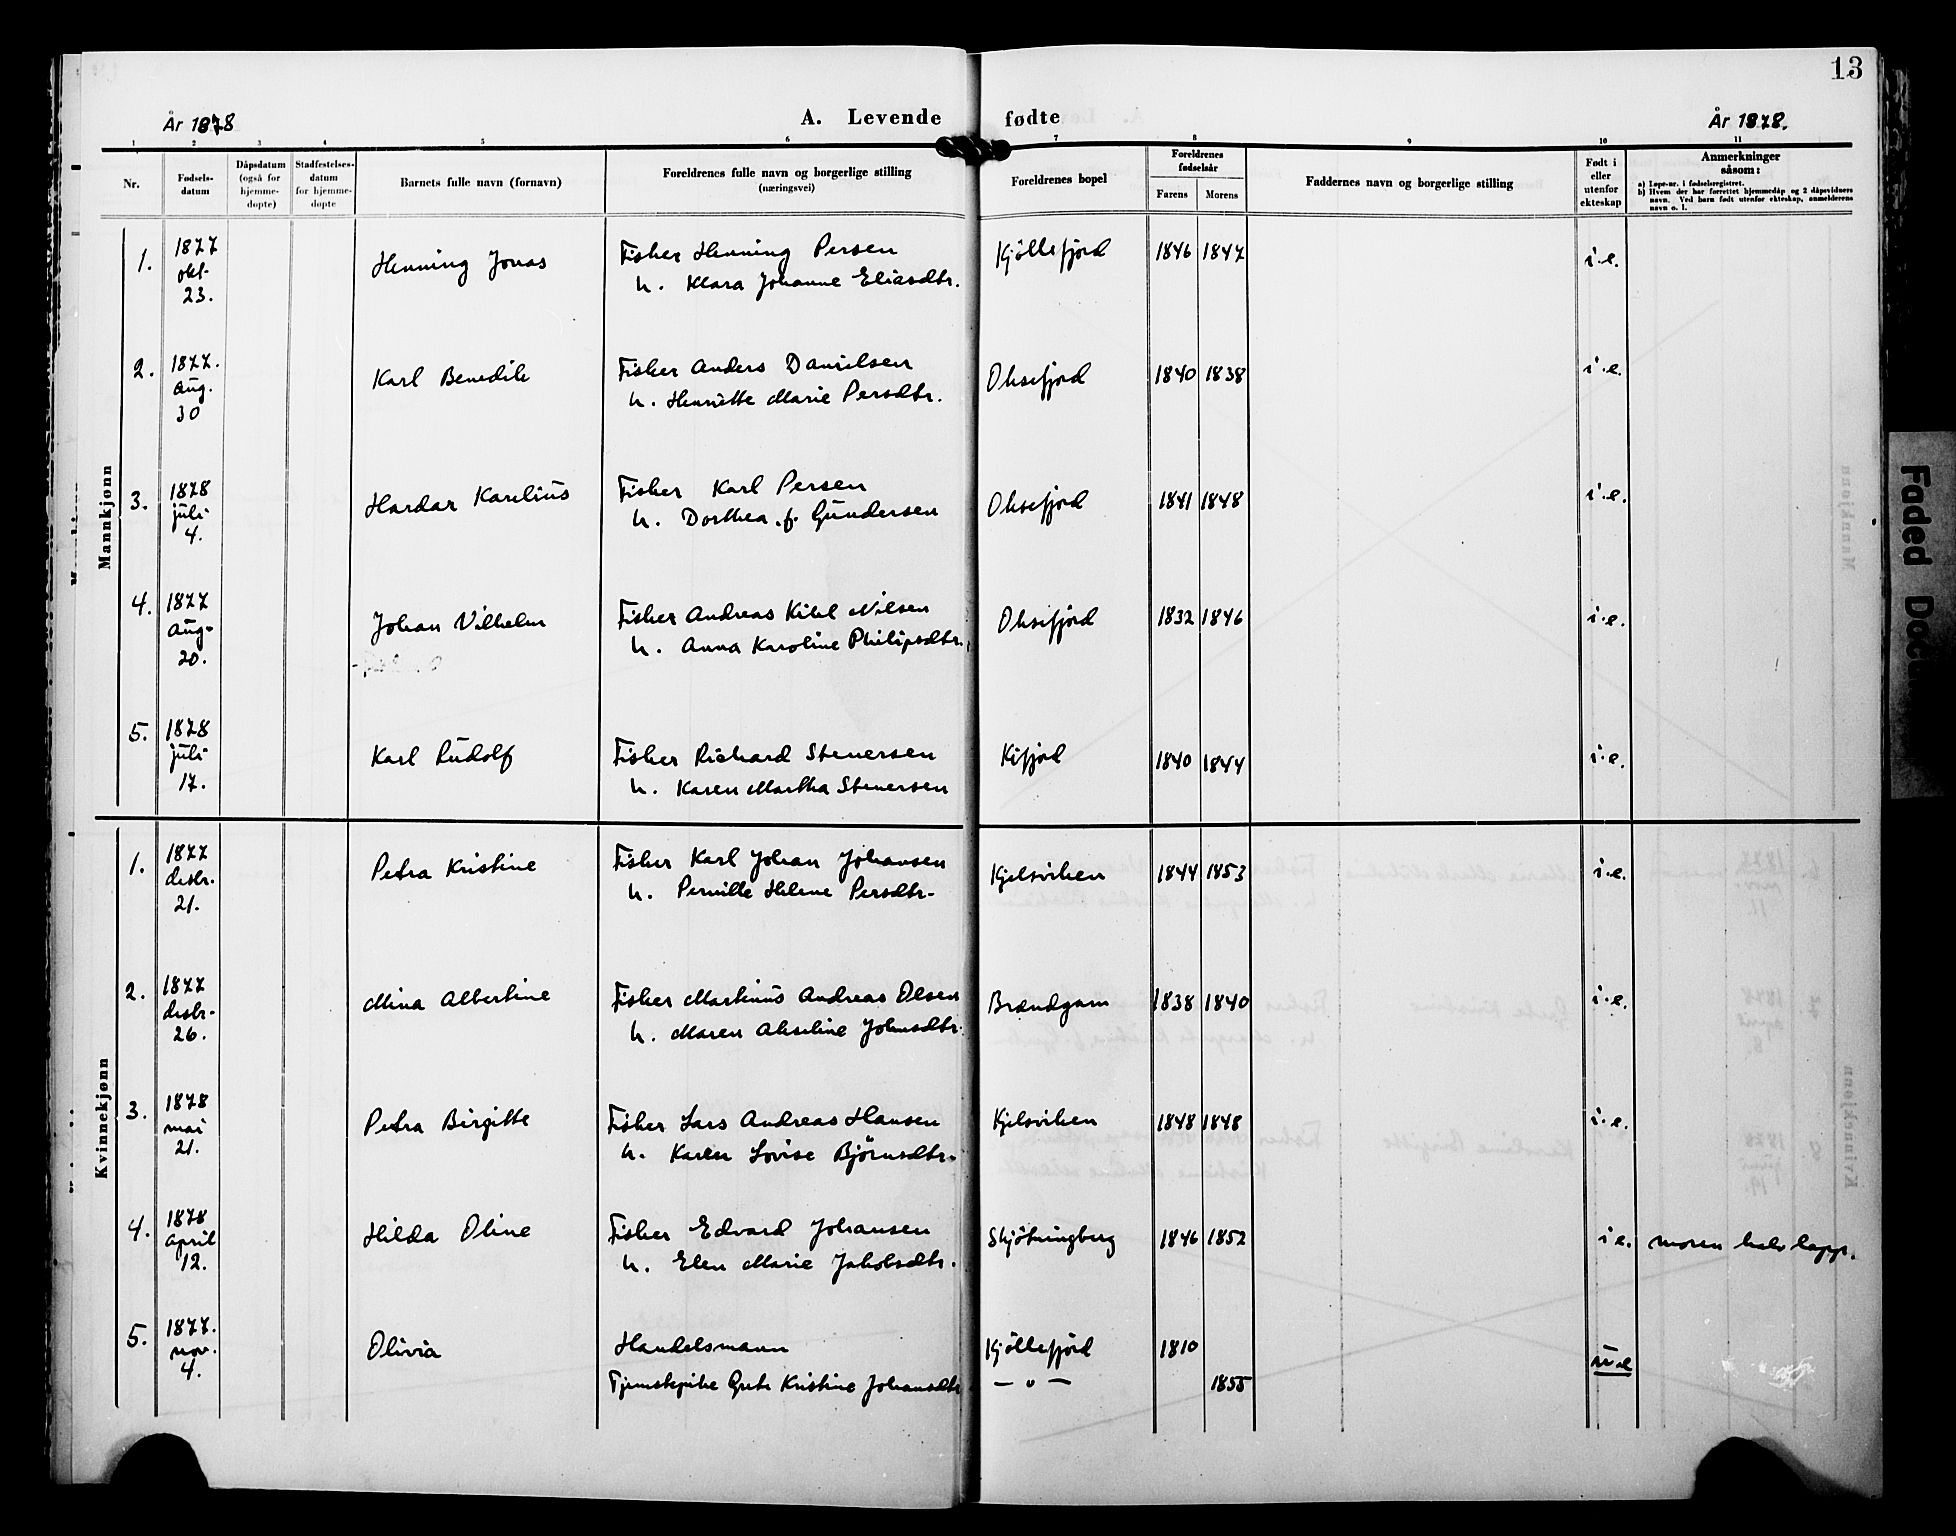 13
År 1878
A. Levende fødte
År 1878.
1 2 3 4 5 6 7 8 9 10 11
Nr.
Fødsels-
datum
Dåpsdatum
(også for
hjemme-
døpte)
Stadfestelses-
datum
for hjemme-
døpte
Barnets fulle navn (fornavn)
Foreldrenes fulle navn og borgerlige stilling
(næringsvei)
Foreldrenes bopel
Foreldrenes
fødselsår
Farens Morens
Faddernes navn og borgerlige stilling
Født i
eller
utenfor
ekteskap
Anmerkninger
såsom:
a) Løpe-nr. i fødselsregistret.
b) Hvem der har forrettet hjemmedåp og 2 dåpsvidners
navn. Ved barn født utenfor ekteskap, anmelderens
navn o. l.
Mannkjønn
1. 1877 okt. 23. Henning Jonas Fisker Henning Persen Kjøllefjord 1846 1847 i.e.
h. Klara Johanne Eliasdtr.
2. 1877. aug. 30 Karl Benedik Fisker Anders Danielsen Oksefjord 1840 1838 i.e.
h. Henriette Marie Persdtr.
3. 1878 juli 4. Hardar Karelius Fisker Karl Persen Oksefjord 1841 1848 i.e.
h. Dorthea f. Gundersen
4. 1877 aug. 20. Johan Vilhelm Fisker Andreas Kitil Nilsen Oksefjord 1832 1846 i.e.
h. Anna Karoline Philipsdtr.
5. 1878 juli 17. Karl Rudolf Fisker Richard Stenersen Kifjord 1840 1844 i.e.
h. Karen Martha Stenersen
Kvinnekjønn
1. 1877 desbr. 21. Petra Kristine Fisker Karl Johan Johansen Kjelsviken 1844 1853 i.e.
h. Pernille Helene Persdtr.
2. 1877 desbr. 26. Mina Albertine Fisker Martinus Andreas Olsen Brændgam 1838 1840 i.e.
h. Maren Akseline Johnsdtr.
3. 1878 mai 21. Petra Birgitte Fisker Lars Andreas Hansen Kjelsviken 1848 1848 i.e.
h. Karen Lovise Bjørnsdtr.
4. 1878 april 12. Hilda Oline Fisker Edvard Johansen Skjøtningberg 1846 1852 i.e. moren halv lapp.
h. Elen Marie Jakobsdtr.
5. 1877. nov. 4. Olivia Handelsmann Kjøllefjord 1810 u.e
Tjenestepike Grete Kristine Johansdtr. — " — 1855
Faded